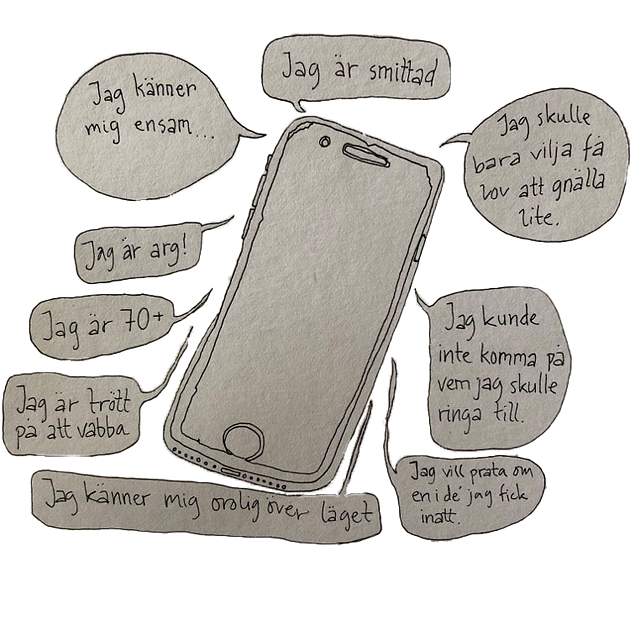 Jag är smittad
Jag känner
mig ensam...
Jag skulle
bara vilja få
lov att gnälla
lite.
Jag är arg!
Jag är 70+
Jag kunde
inte komma på
vem jag skulle
ringa till.
Jag är trött
på att vabba
Jag känner mig orolig över läget
Jag vill prata om
en idé jag fick
inatt.